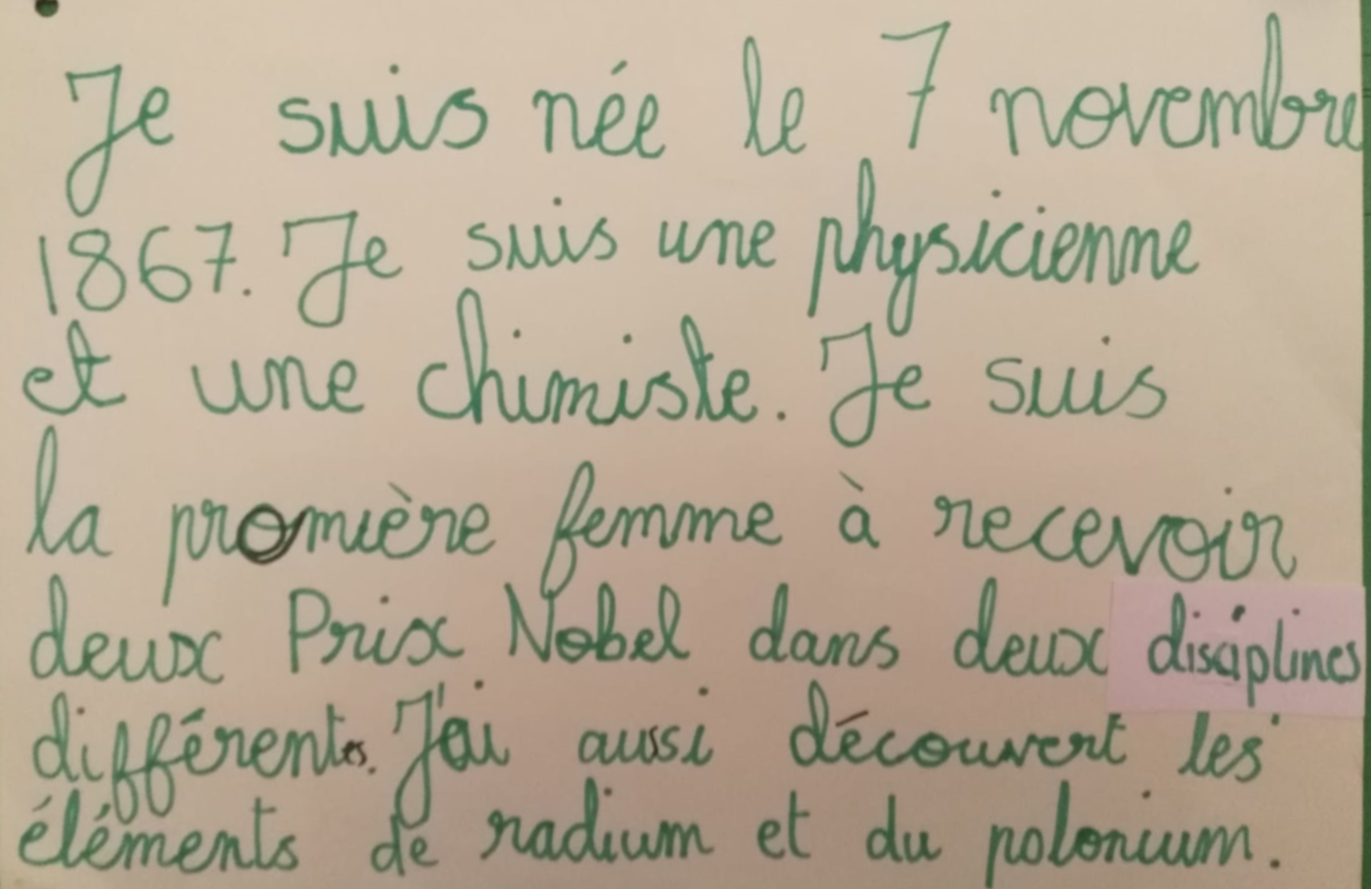 Je suis née le 7 novembre
1867. Je suis une physicienne
et une chimiste. Je suis
la promière femme à recevoir
deux Prix Nobel dans deux disciplines
différentes. J'ai aussi découvert les
éléments de radium et du polonium.